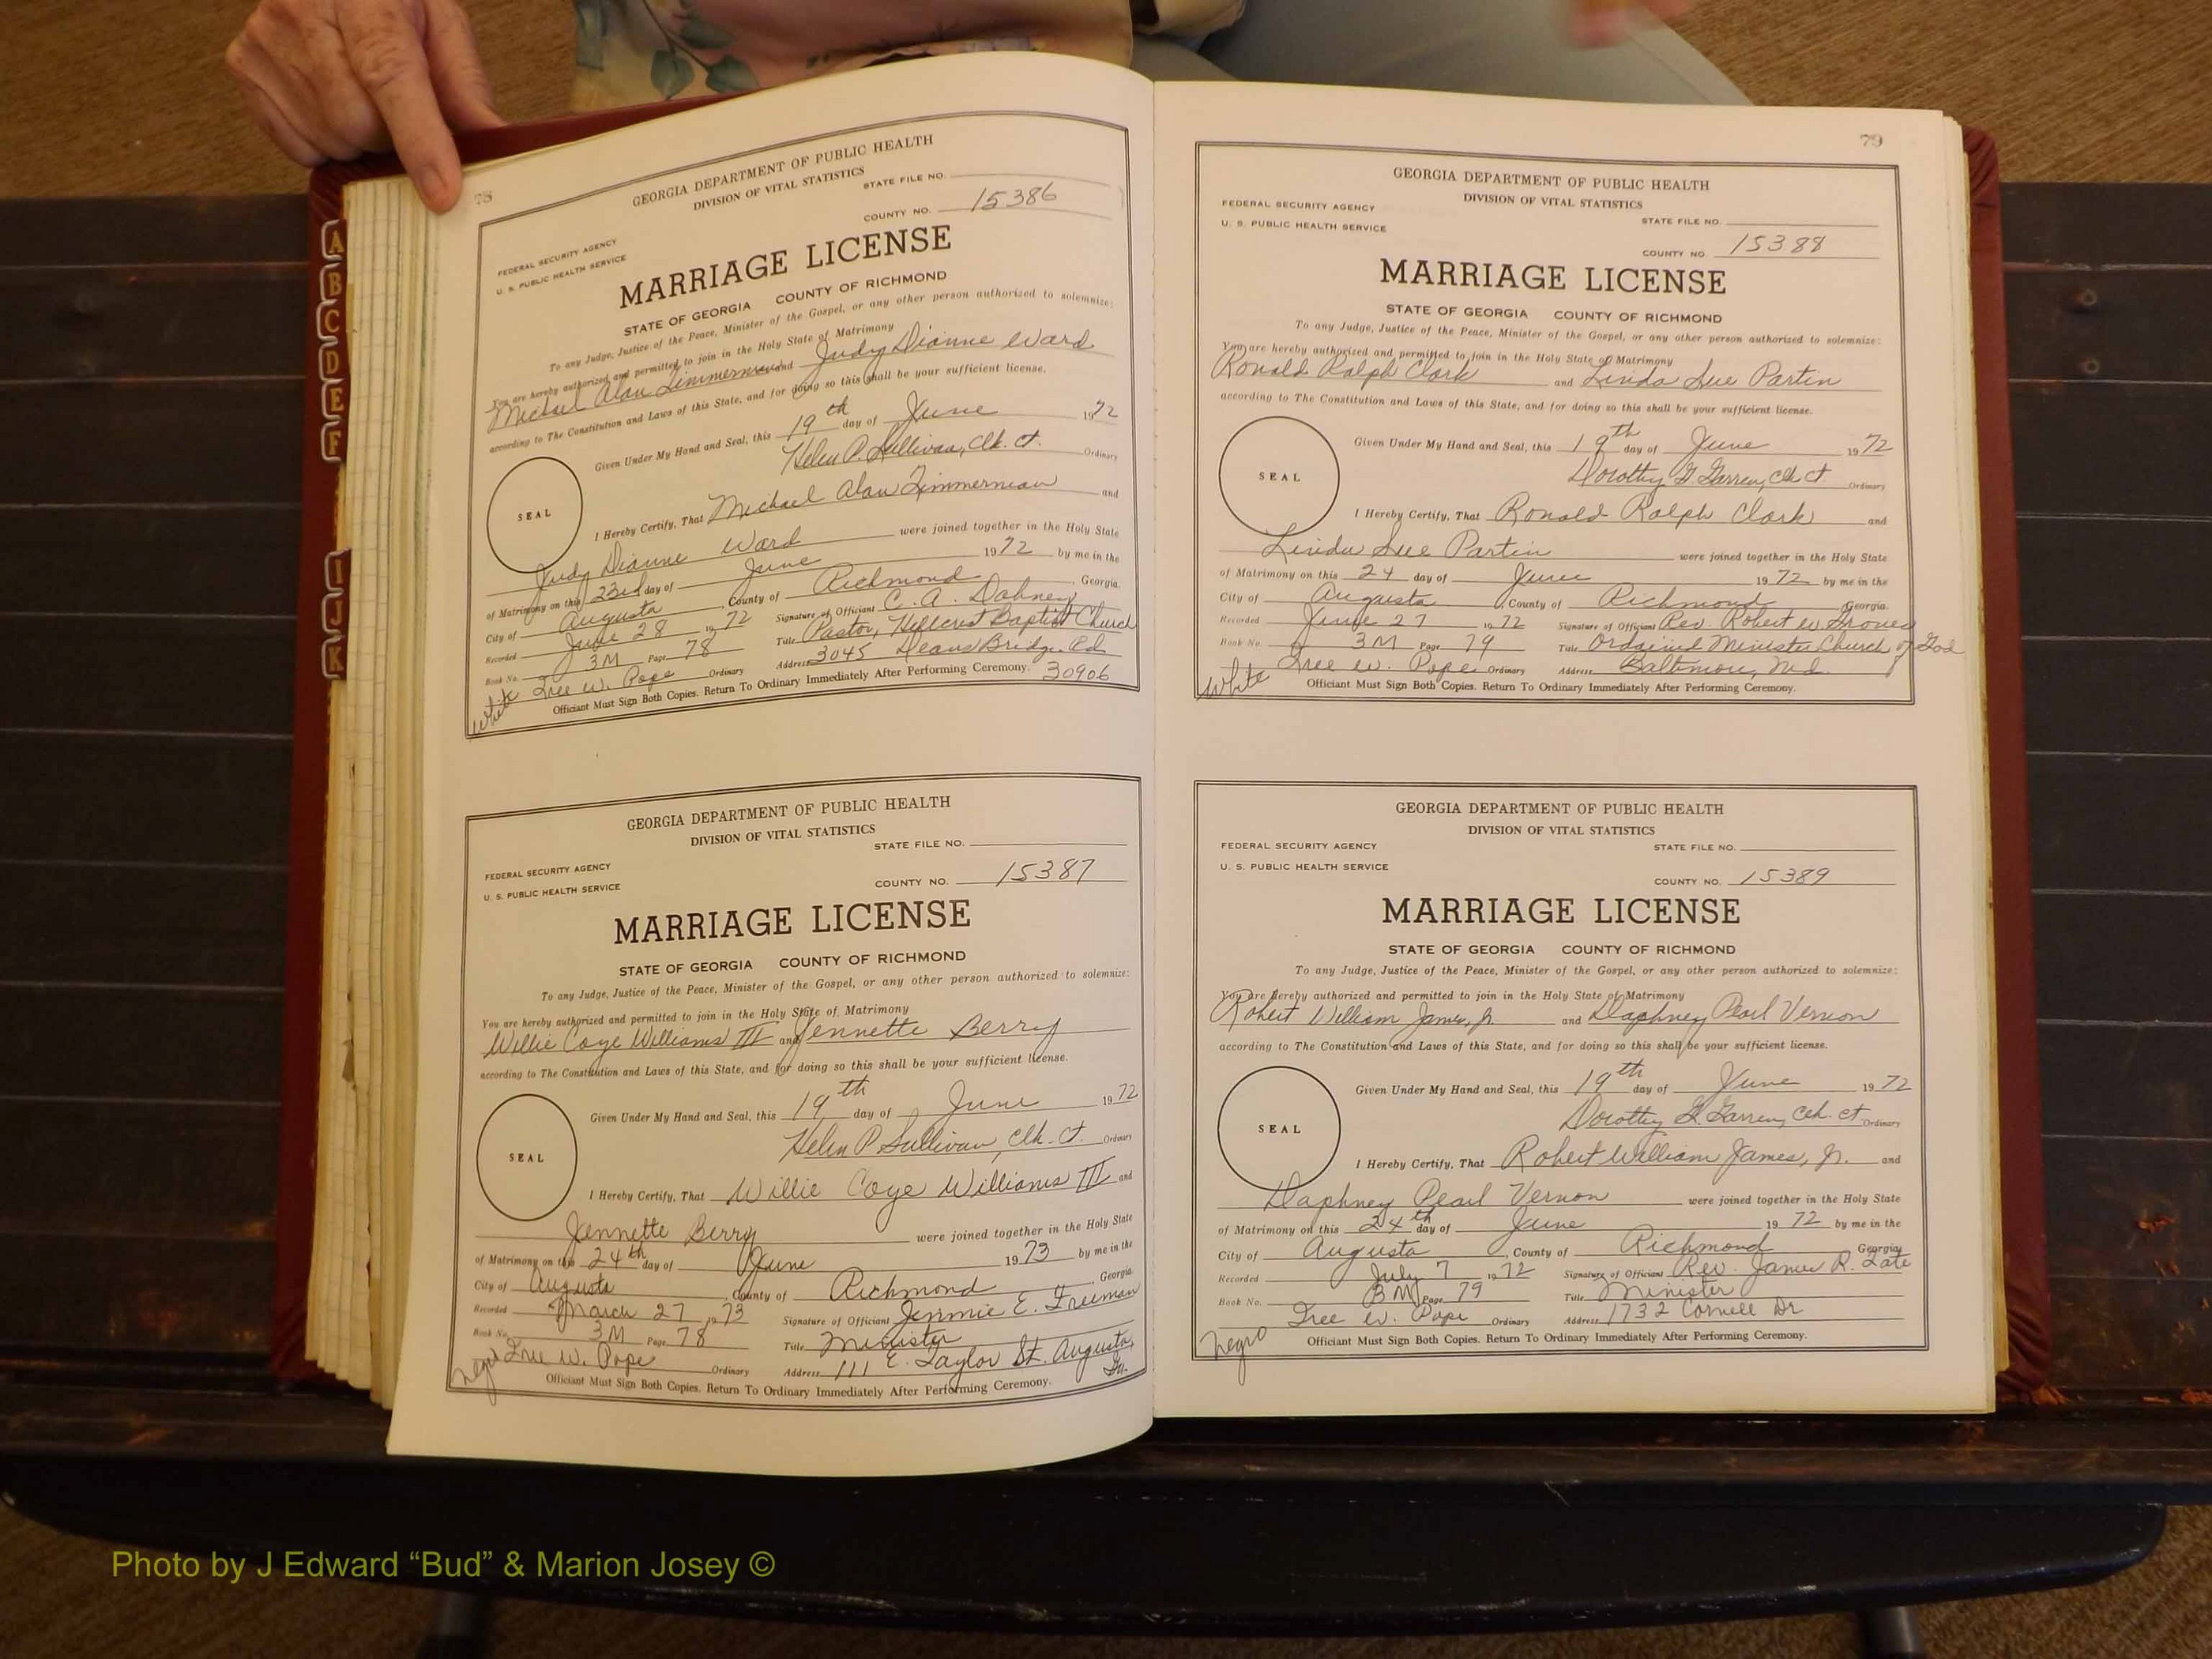 A
B
C
D
E
F
I
J
K
78
GEORGIA DEPARTMENT OF PUBLIC HEALTH
DIVISION OF VITAL STATISTICS
STATE FILE NO.
COUNTY NO. 15386
FEDERAL SECURITY AGENCY
U. S. PUBLIC HEALTH SERVICE
MARRIAGE LICENSE
STATE OF GEORGIA COUNTY OF RICHMOND
To any Judge, Justice of the Peace, Minister of the Gospel, or any other person authorized to solemnize:
You are hereby authorized and permitted to join in the Holy State of Matrimony
Michael Alan Zimmerman and Judy Dianne Ward
according to The Constitution and Laws of this State, and for doing so this shall be your sufficient license.
Given Under My Hand and Seal, this 19th day of June 1972
Helen P. Sullivan, Clk. Ct. Ordinary
SEAL
I Hereby Certify, That Michael Alan Zimmerman and
Judy Dianne Ward were joined together in the Holy State
of Matrimony on this 23rd day of June 1972 by me in the
City of Augusta, County of Richmond, Georgia.
Recorded June 28 1972 Signature of Officiant C. A. Dabney
Book No. 3M Page 78 Title Pastor, Hillcrest Baptist Church
Tree W. Pope Ordinary Address 3045 Deans Bridge Rd.
White Officiant Must Sign Both Copies. Return To Ordinary Immediately After Performing Ceremony. 30906
GEORGIA DEPARTMENT OF PUBLIC HEALTH
DIVISION OF VITAL STATISTICS
STATE FILE NO.
FEDERAL SECURITY AGENCY
U. S. PUBLIC HEALTH SERVICE
COUNTY NO. 15387
MARRIAGE LICENSE
STATE OF GEORGIA COUNTY OF RICHMOND
To any Judge, Justice of the Peace, Minister of the Gospel, or any other person authorized to solemnize:
You are hereby authorized and permitted to join in the Holy State of Matrimony
Willie Coye Williams III and Jennette Berry
according to The Constitution and Laws of this State, and for doing so this shall be your sufficient license.
Given Under My Hand and Seal, this 19th day of June 1972
Helen P. Sullivan, Clk. Ct. Ordinary
SEAL
I Hereby Certify, That Willie Coye Williams III and
Jennette Berry were joined together in the Holy State
of Matrimony on this 24th day of June 1973 by me in the
City of Augusta, County of Richmond, Georgia
Recorded March 27 1973 Signature of Officiant Jimmie E. Freeman
Book No. 3M Page 78 Title Minister
Tree W. Pope Ordinary Address 111 E. Taylor St. Augusta, Ga.
Negro Officiant Must Sign Both Copies. Return To Ordinary Immediately After Performing Ceremony.
79
GEORGIA DEPARTMENT OF PUBLIC HEALTH
DIVISION OF VITAL STATISTICS
FEDERAL SECURITY AGENCY
U. S. PUBLIC HEALTH SERVICE
STATE FILE NO.
COUNTY NO. 15388
MARRIAGE LICENSE
STATE OF GEORGIA COUNTY OF RICHMOND
To any Judge, Justice of the Peace, Minister of the Gospel, or any other person authorized to solemnize:
You are hereby authorized and permitted to join in the Holy State of Matrimony
Ronald Ralph Clark and Linda Sue Partin
according to The Constitution and Laws of this State, and for doing so this shall be your sufficient license.
Given Under My Hand and Seal, this 19th day of June 1972
Dorothy G. Garren, Clk Ct Ordinary
SEAL
I Hereby Certify, That Ronald Ralph Clark and
Linda Sue Partin were joined together in the Holy State
of Matrimony on this 24 day of June 1972 by me in the
City of Augusta, County of Richmond, Georgia.
Recorded June 27 1972 Signature of Officiant Rev. Robert W. Groves
Book No. 3M Page 79 Title Ordained Minister Church of God
Tree W. Pope Ordinary Address Baltimore, Md.
White Officiant Must Sign Both Copies. Return To Ordinary Immediately After Performing Ceremony.
GEORGIA DEPARTMENT OF PUBLIC HEALTH
DIVISION OF VITAL STATISTICS
FEDERAL SECURITY AGENCY
STATE FILE NO.
U. S. PUBLIC HEALTH SERVICE
COUNTY NO. 15389
MARRIAGE LICENSE
STATE OF GEORGIA COUNTY OF RICHMOND
To any Judge, Justice of the Peace, Minister of the Gospel, or any other person authorized to solemnize:
You are hereby authorized and permitted to join in the Holy State of Matrimony
Robert William James, Jr. and Daphney Pearl Vernon
according to The Constitution and Laws of this State, and for doing so this shall be your sufficient license.
Given Under My Hand and Seal, this 19th day of June 1972
Dorothy G. Garren, Clk. Ct. Ordinary
SEAL
I Hereby Certify, That Robert William James, Jr. and
Daphney Pearl Vernon were joined together in the Holy State
of Matrimony on this 24th day of June 1972 by me in the
City of Augusta, County of Richmond, Georgia
Recorded July 7 1972 Signature of Officiant Rev. James R. Tate
Book No. 3M Page 79 Title Minister
Tree W. Pope Ordinary Address 1732 Cornell Dr
Negro Officiant Must Sign Both Copies. Return To Ordinary Immediately After Performing Ceremony.
Photo by J Edward “Bud” & Marion Josey ©